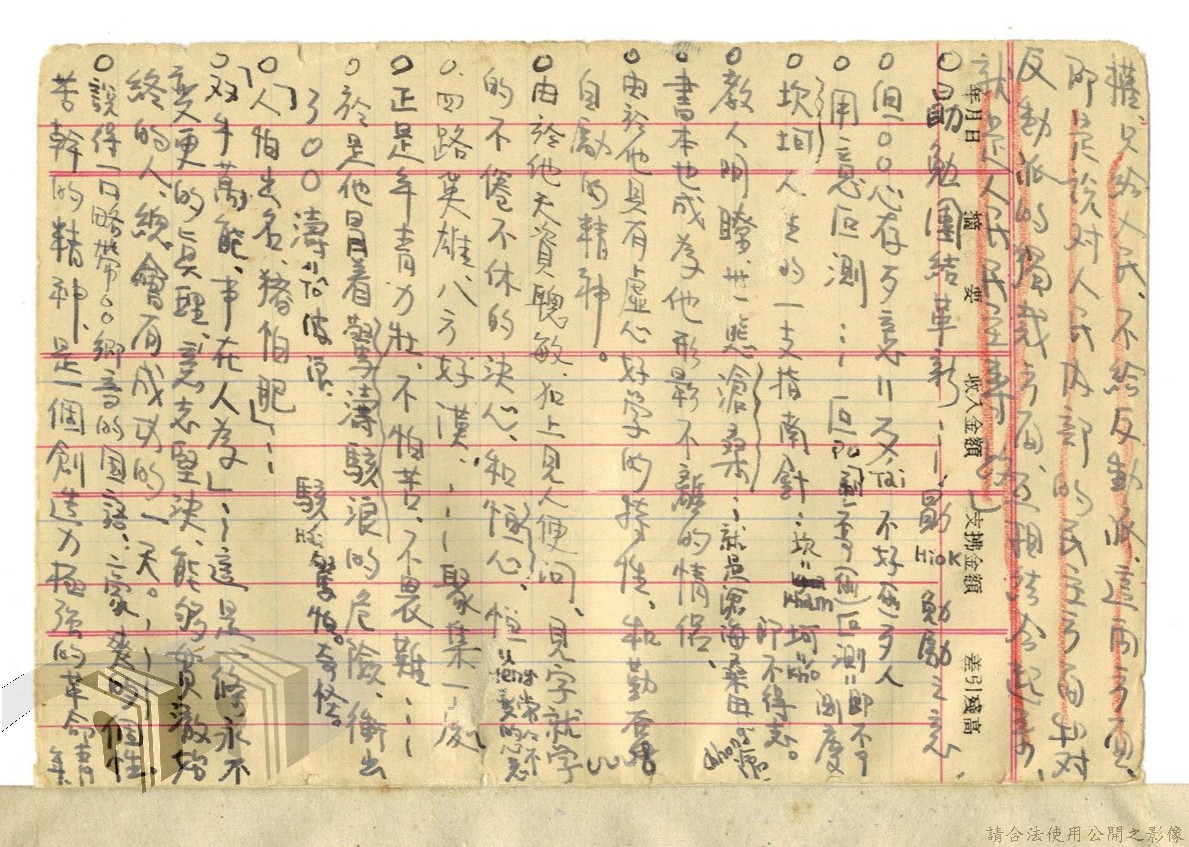 權、只給人民、不給反動派、這兩方面、
即是說對人民內部的民主方面和對
反動派的獨裁方面、互相結合起來、
就是人民民主專政」
年月日 摘要 收入金額 支拂金額 差引殘高
○勗勉團結革新、…勗 Hiok 勉勵之意、
○但○○心存歹意＝歹 tai 不好 歹人
○用意叵測…叵 不可 叵測＝即不可測度
○坎坷人生的一支指南針…坎 坷 即不得志。
○教人明瞭世態滄桑…就是滄海桑田
○書本也成為他形影不離的情侶、
○由於他具有虛心好學的特性、和勤
自勵的精神。
○由於他天資聰敏、加上見人便問、見字就學
的不倦不休的決心、和恒心、
○四路英雄、八方好漢、…聚集一處
○正是年青力壯、不怕苦、不畏難…
○於是他冒着驚濤駭浪的危險、衝出
了○○ 濤 波浪 駭 驚怕。奇怪。
○「人怕出名、豬怕肥」…
○双手萬能、事在人為」…這是一條永不
變更的真理、意志堅決、能够貫澈始
終的人、總會有成功的一天。…
○說得一口略帶○○鄉音的國語…的個性
苦幹的精神、是一個創造力極強的革命青年
請合法使用公開之影像